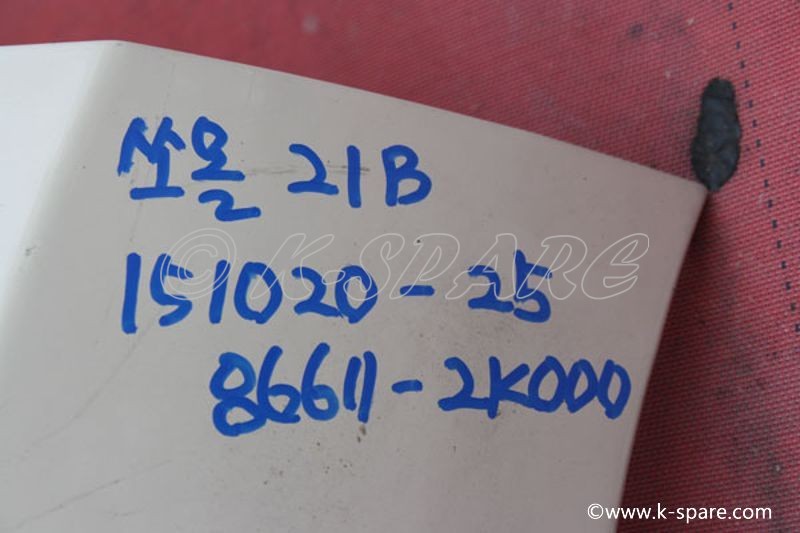 쏘울 21B
151020-25
86611-2K000
© K-SPARE
©www.k-spare.com